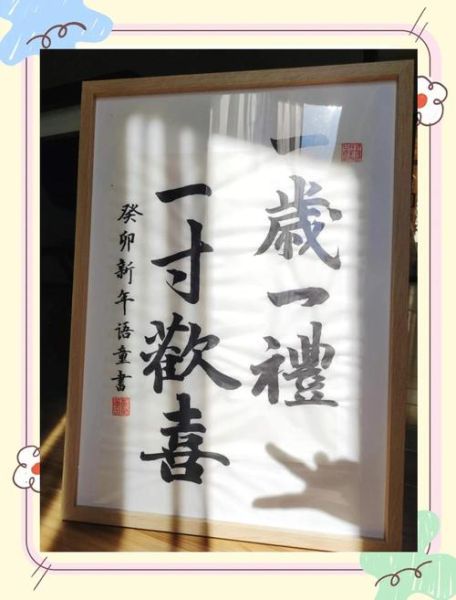 一歲一禮
一寸歡喜
癸卯新年语童書